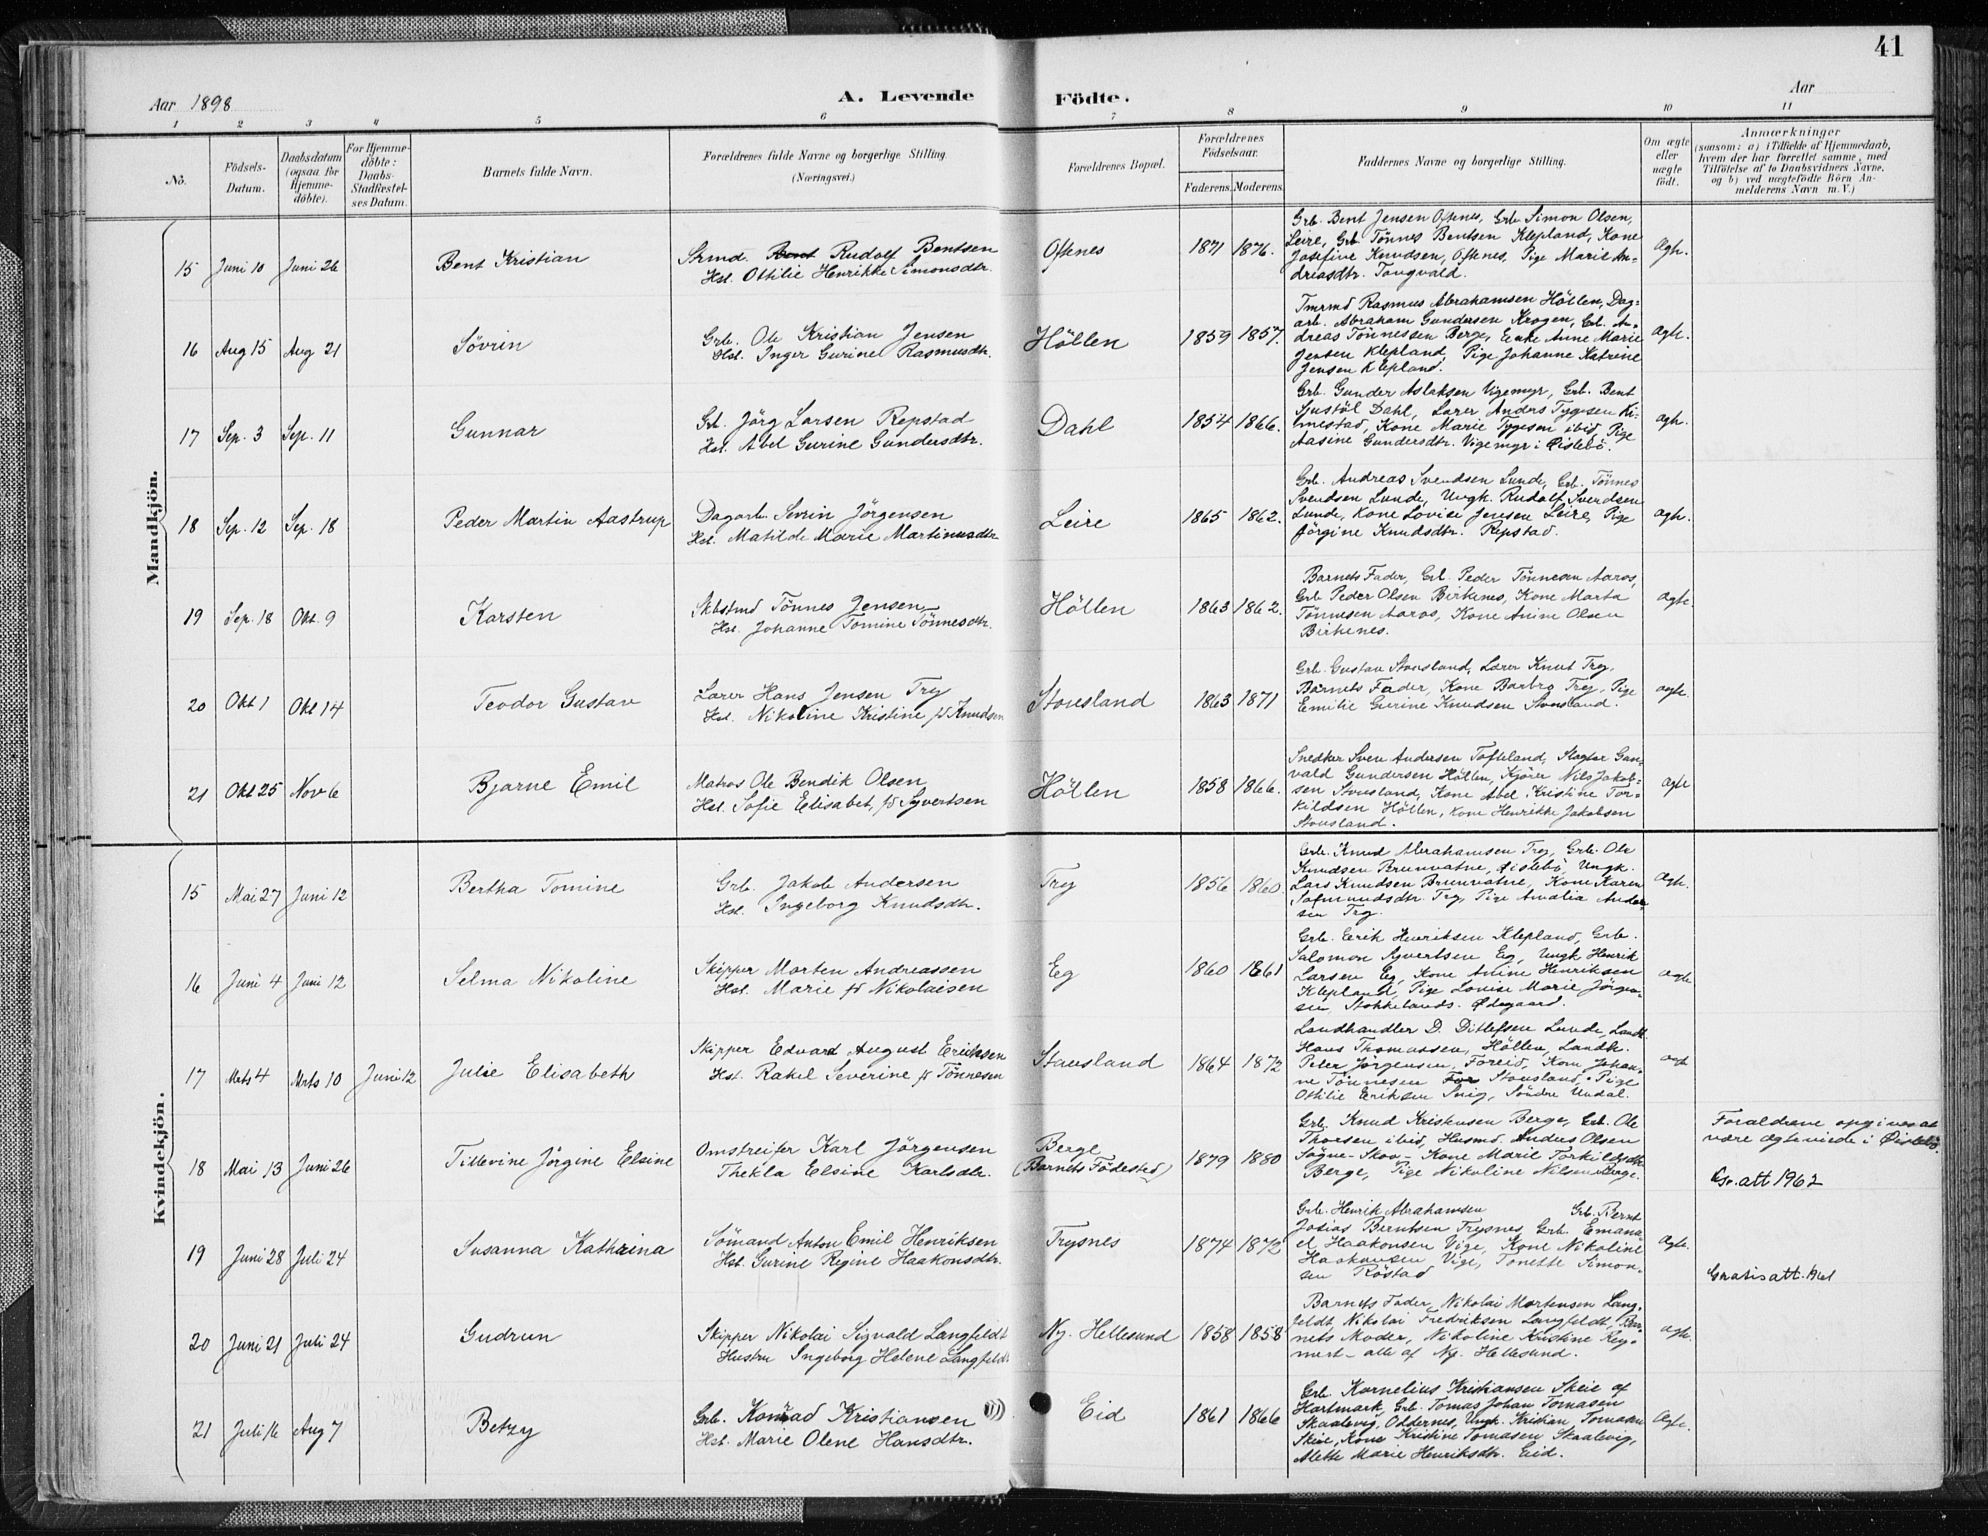 41
Aar 1898
A. Levende Födte.
Aar
1 2 3 4 5 6 7 8 9 10 11
Nô.
Födsels-Datum.
Daabsdatum (ogsaa for Hjemme-döbte).
For Hjemme-döbte: Daabs-Stadfæstel-ses Datum.
Barnets fulde Navn.
Forældrenes fulde Navne og borgerlige Stilling.
(Næringsvei.)
Forældrenes Bopæl.
Forældrenes Födselsaar.
Faderens. Moderens.
Faddernes Navne og borgerlige Stilling.
Om ægte eller uægte födt.
Anmærkninger
(saasom: a) i Tilfælde af Hjemmedaab, hvem der har forrettet samme, med Tilföielse af to Daabsvidners Navne, og b) ved uægtefödte Börn An-melderens Navn m. V.)
Mandkjön.
15 Juni 10 Juni 26 Bent Kristian
Strmd. Bent Rudolf Bentsen
Hst. Ottilie Henrikke Simonsdtr.
Oftenes 1871 1876.
Grb. Bent Jensen Oftenes, Grb Simon Olsen,
Leire, Grb. Tönnes Bentsen Klepland, Kone
Josefine Knudsen, Oftenes, Pige Marie An-
dreasdtr. Tangvald.
Ægte.
16 Aug 15 Aug 21 Sövrin
Grb. Ole Kristian Jensen
Hst. Inger Gurine Rasmusdtr.
Höllen 1859 1857.
Tmrmd Rasmus Abrahamsen Höllen, Dag-
arb. Abraham Gundersen Krogen, Grb. An-
dreas Tönnessen Berge, Enke Anne Marie
Jensen Klepland, Pige Johanne Katrine
Jensen Klepland.
ægte.
17 Sep. 3 Sep. 11 Gunnar
Grb. Jörg Larsen Repstad
Hst. Abel Gurine Gundersdtr.
Dahl 1854 1866.
Grb. Gunder Aslaksen Vigemyr, Grb. Bent
Sjustöl Dahl, Lærer Anders Tygesen Ki-
mestad, Kone Marie Tygesen ibid, Pige
Aasine Gundersdtr. Vigemyr i Øislebö.
ægte.
18 Sep. 12 Sep. 18 Peder Martin Aastrup
Dagarb. Sevrin Jörgensen
Hst. Matilde Marie Martinusdtr
Leire 1865 1862.
Grb. Andreas Svendsen Lunde, Grb. Tönnes
Svendsen Lunde, Ungk. Rudolf Svendsen
Lunde, Kone Lovise Jensen Leire, Pige
Jörgine Knudsdtr. Repstad.
ægte.
19 Sep. 18 Okt. 9 Karsten
Skbstmd Tönnes Jensen
Hst. Johanne Tomine Tönnesdtr.
Höllen 1863 1862.
Barnets Fader, Grb. Peder Tönnesen Aaros,
Grb Peder Olsen Birkenes, Kone Marta
Tönnesen Aaros, Kone Anine Olsen
Birkenes.
ægte.
20 Okt 1 Okt 14 Teodor Gustav
Lærer Hans Jensen Try
Hst. Nikoline Kristine fd Knudsen
Stousland 1863 1871
Grb. Gustav Stousland, Lærer Knut Try,
Barnets Fader, Kone Barbro Try, Pige
Emilie Gurine Knudsen Stousland.
ægte
21 Okt 25 Nov 6 Bjarne Emil
Matros Ole Bendik Olsen
Hst. Sofie Elisabet fd Syvertsen
Höllen 1858 1866.
Snedker Sven Andersen Tofteland, Slagter Gun-
vald Gundersen Höllen, Kjörer Nils Jakob-
sen Stousland, Kone Abel Kristine Tor-
kildsen Höllen, Kone Henrikke Jakobsen
Stousland.
ægte
Kvindekjön.
15 Mai 27 Juni 12 Bertha Tomine
Grb. Jakob Andersen
Hst. Ingeborg Knudsdtr.
Try 1856 1860
Grb. Knud Abrahamsen Try, Grb. Ole
Knudsen Brunvatne, Øislebö, Ungk.
Lars Knudsen Brunvatne, Kone Karen
Salmundsdtr. Try, Pige Amalia Ander-
sen Try.
Ægte.
16 Juni 4 Juni 12 Selma Nikoline
Skipper Morten Andreassen
Hst. Marie fd Nikolaisen
Eg 1860 1861
Grb. Erik Henriksen Klepland, Grb.
Salomon Syvertsen Eg, Ungk Henrik
Larsen Eg, Kone Anine Henriksen
Klepland, Pige Lovise Marie Jörgen-
sen, Stokkelands. Ødegaard.
ægte
17 Mrts 4 Mrts 10 Juni 12 Julie Elisabeth
Skipper Edvard August Eriksen
Hst. Rakel Severine fd Tönnesen
Stausland 1864 1872
Landhandler D. Ditlefsen Lunde, Landh.
Hans Thomassen, Höllen, Landh.
Peter Jörgensen, Föreid, Kone Johan-
ne Tönnesen Stousland, Pige
Ottilie Eriksen Svig, Söndre Undal.
ægte
18 Mai 13 Juni 26 Tillevine Jörgine Elsine
Omstreifer Karl Jörgensen
Thekla Elsine Karlsdtr.
Berge
(Barnets Födested) 1879 1880
Grb. Knud Kristensen Berge, Grb. Ole
Thorsen ibid, Husmd. Anders Olsen
Søgne-Skov- Kone Marie Torkildsdtr
Berge, Pige Nikoline Nilsen Berge.
Forældrene opgives at
være ægteviede i Øislebö.
Gr. att 1962
19 Juni 28 Juli 24 Susanna Kathrina
Sömand Anton Emil Henriksen
Hst. Gurine Regine Haakonsdtr.
Trysnes 1874 1872
Grb. Henrik Abrahamsen Grb. Bernt
Josias Berntsen Trysnes, Grb. Emanu-
el Haakonsen Vige, Kone Nikoline
Haakonsen Vige, Tonette Simon-
sen Röstad
Ægte.
Gratisatt.
20 Juni 21 Juli 24 Gudrun
Skipper Nikolai Sigvald Langfeldt
Hustru Ingeborg Helene Langfeldt
Ny. Hellesund 1858 1858
Barnets Fader, Nikolai Mortensen Lang-
feldt, Nikolai Fredriksen Langfeldt, Bar-
nets Moder, Nikoline Kristine Rey-
mert - alle af Ny. Hellesund.
ægte.
21 Juli 16 Aug 7 Betzy
Grb. Konrad Kristiansen
Hst. Marie Olene Hansdtr.
Eid 1861 1866
Grb. Kornelius Kristiansen Skeie af
Hartmark, Grb. Tomas Johan Tomasen
Skaalevig, Oddernes, Ungk. Kristian Tomasen
Skeie, Kone Kristine Tomasen Skaalevig,
Alette Marie Henriksdtr. Eid.
Ægte.